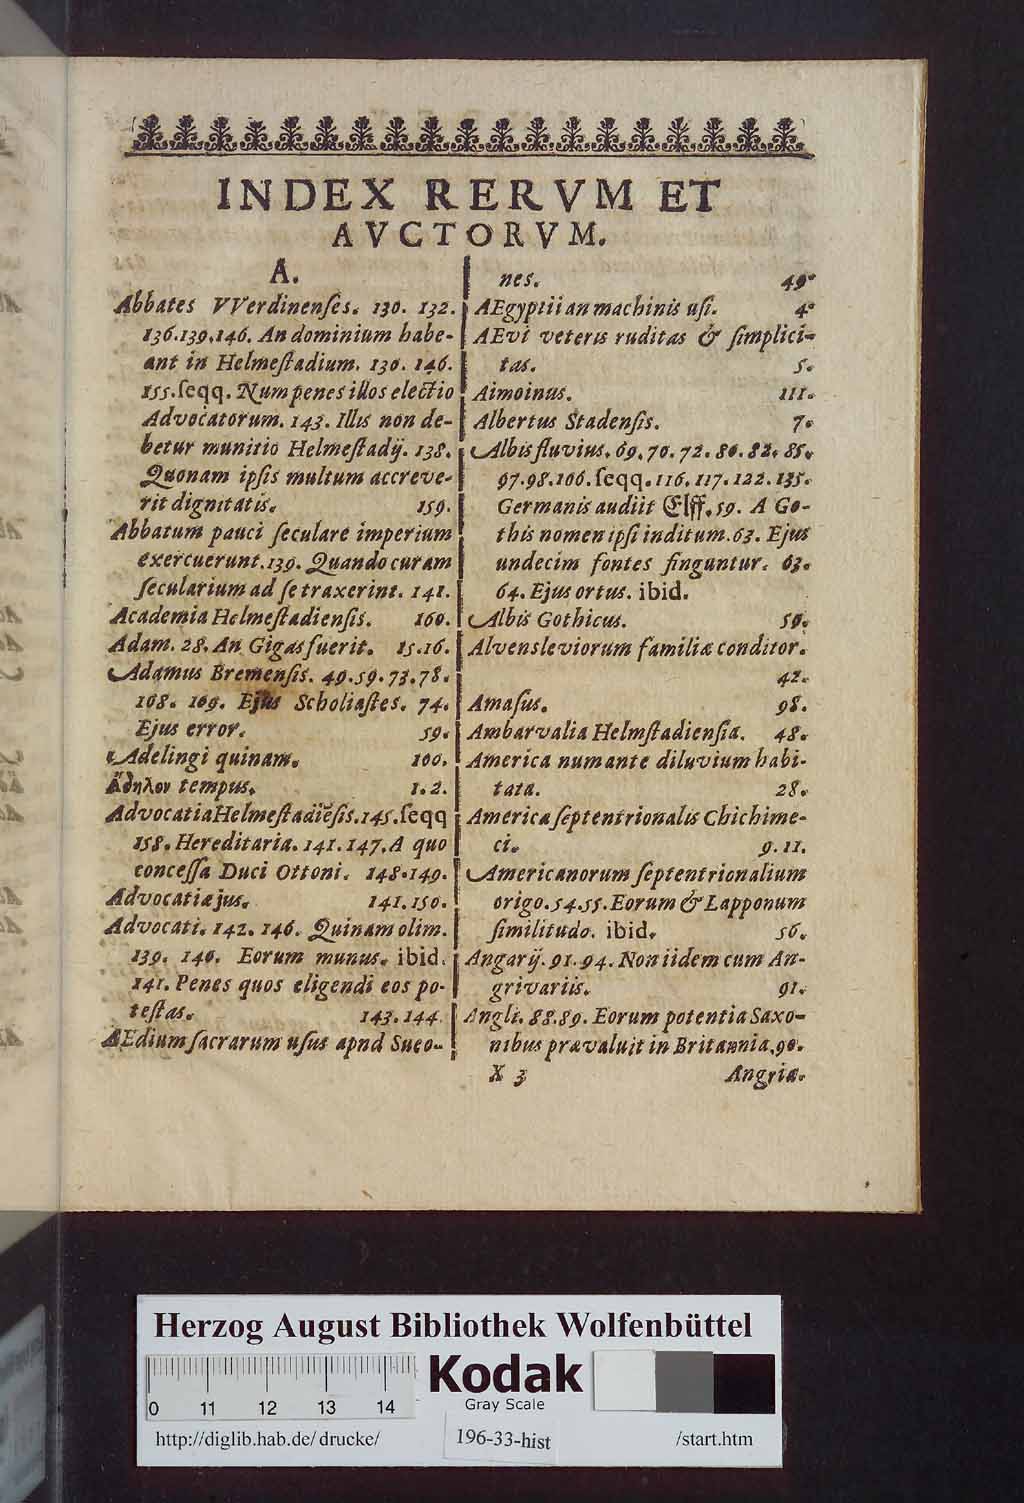 INDEX RERVM ET
AVCTORVM.
A.
Abbates VVerdinenſes. 130. 132.
136.139.146. An dominium habe-
ant in Helmeſtadium. 130. 146.
155.ſeqq. Num penes illos electio
Advocatorum. 143. Illis non de-
betur munitio Helmeſtadij. 138.
Quonam ipſis multum accreve-
rit dignitatis. 159.
Abbatum pauci ſeculare imperium
exercuerunt.139. Quando curam
ſecularium ad ſe traxerint. 141.
Academia Helmeſtadienſis. 160.
Adam. 28. An Gigas fuerit. 15.16.
Adamus Bremenſis. 49.59.73.78.
168. 169. Ejus Scholiaſtes. 74.
Ejus error. 59.
Adelingi quinam. 100.
Ἄδηλον tempus. 1.2.
Advocatia Helmeſtadiēſis.145.ſeqq
158. Hereditaria. 141. 147. A quo
conceſſa Duci Ottoni. 148.149.
Advocatiæ jus. 141.150.
Advocati. 142. 146. Quinam olim.
139. 140. Eorum munus. ibid.
141. Penes quos eligendi eos po-
teſtas. 143.144.
AEdium ſacrarum uſus apud Sueo-
nes. 49.
AEgyptii an machinis uſi. 4.
AEvi veteris ruditas & ſimplici-
tas. 5.
Aimoinus. 111.
Albertus Stadenſis. 7.
Albis fluvius. 69. 70. 72. 80. 82. 85.
97.98.106.ſeqq.116.117.122.135.
Germanis audiit Elff. 59. A Go-
this nomen ipſi inditum. 63. Ejus
undecim fontes finguntur. 63.
64. Ejus ortus. ibid.
Albis Gothicus. 59.
Alvensleviorum familiæ conditor.
42.
Amaſus. 98.
Ambarvalia Helmſtadienſia. 48.
America num ante diluvium habi-
tata. 28.
America ſeptentrionalis Chichime-
ci. 9.11.
Americanorum ſeptentrionalium
origo. 54.55. Eorum & Lapponum
ſimilitudo. ibid. 56.
Angarij. 91. 94. Non iidem cum An-
grivariis. 91.
Angli. 88.89. Eorum potentia Saxo-
nibus prævaluit in Britannia.90.
X 3 Angria.
Herzog August Bibliothek Wolfenbüttel
Kodak
Gray Scale
0 11 12 13 14
http://diglib.hab.de/drucke/ 196-33-hist /start.htm